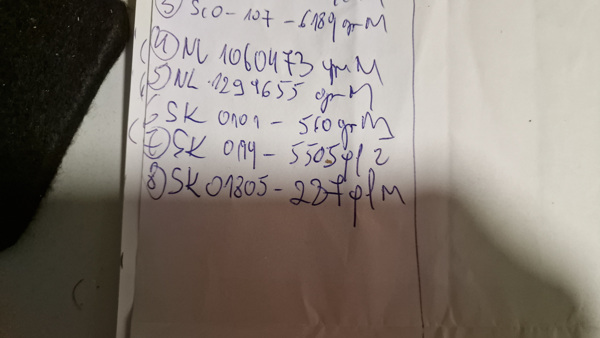 3) SCO-107-6189 grM
4) NL 1060473 grM
5) NL.1299655 grM
6 SK 0101-560 grM
7) SK 0114-5505 gl 2
8) SK 01305-287 glM